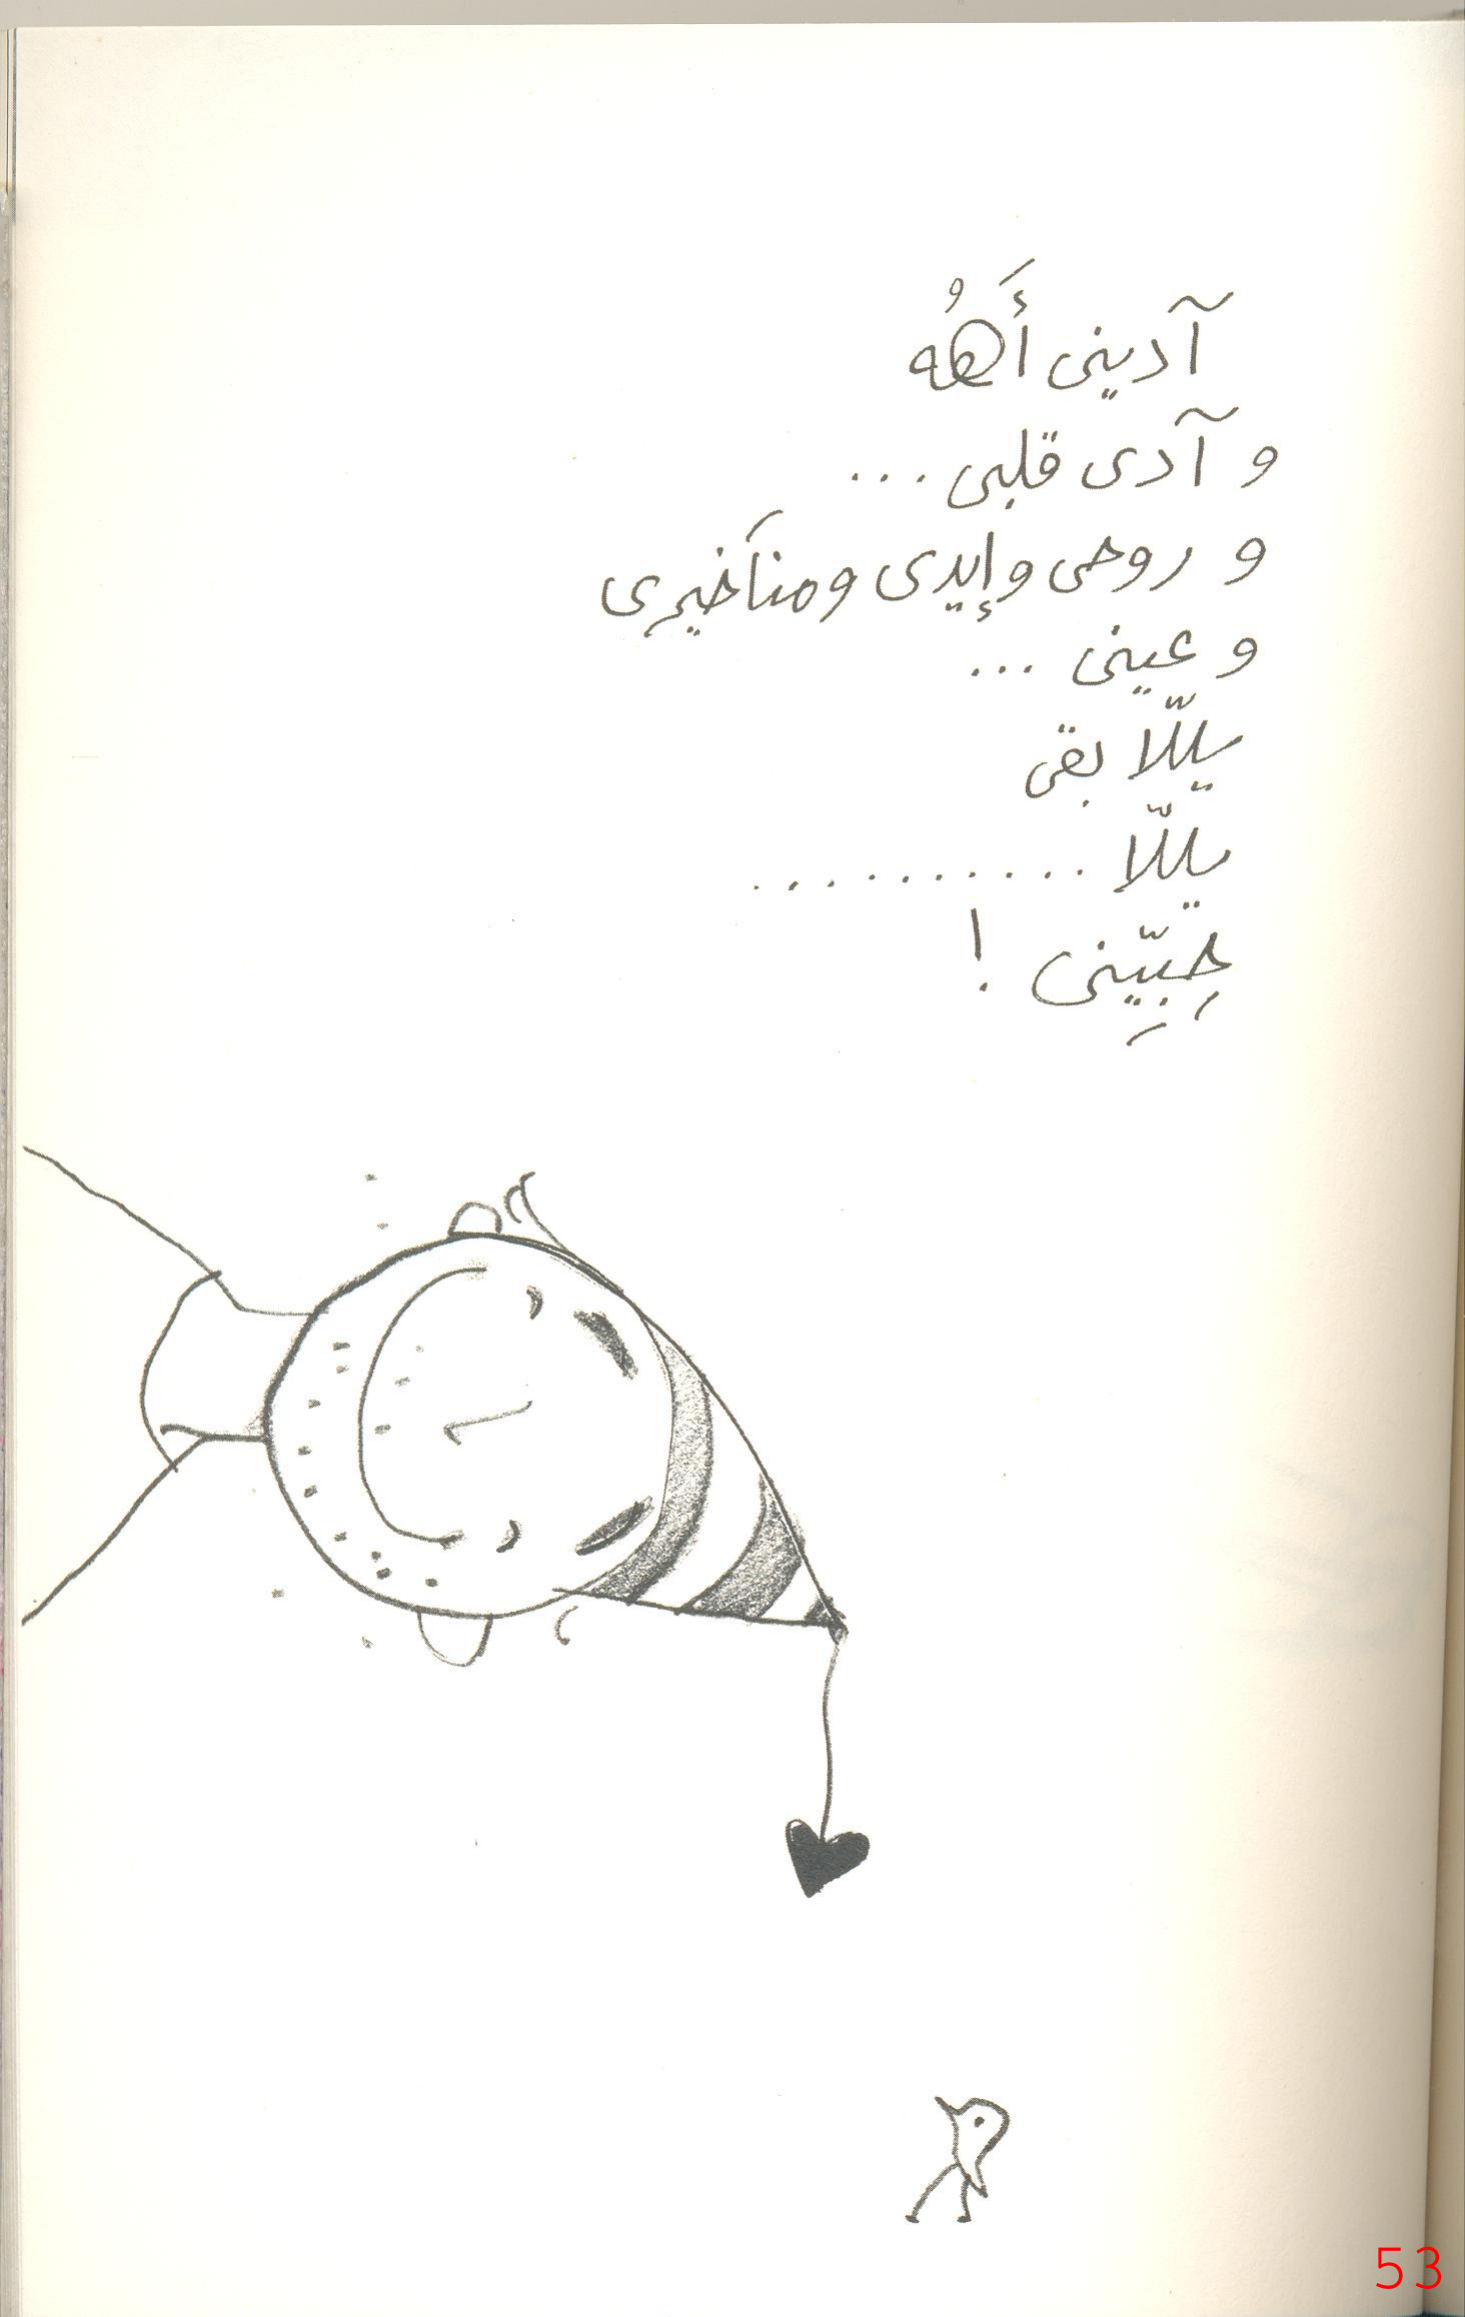 آديني أَهُه
و آدى قلبى ...
و روحى وإيدى ومناَخيرى
و عينى ...
يللّا بقى
يللّا ..........
حِبِّينى !
53